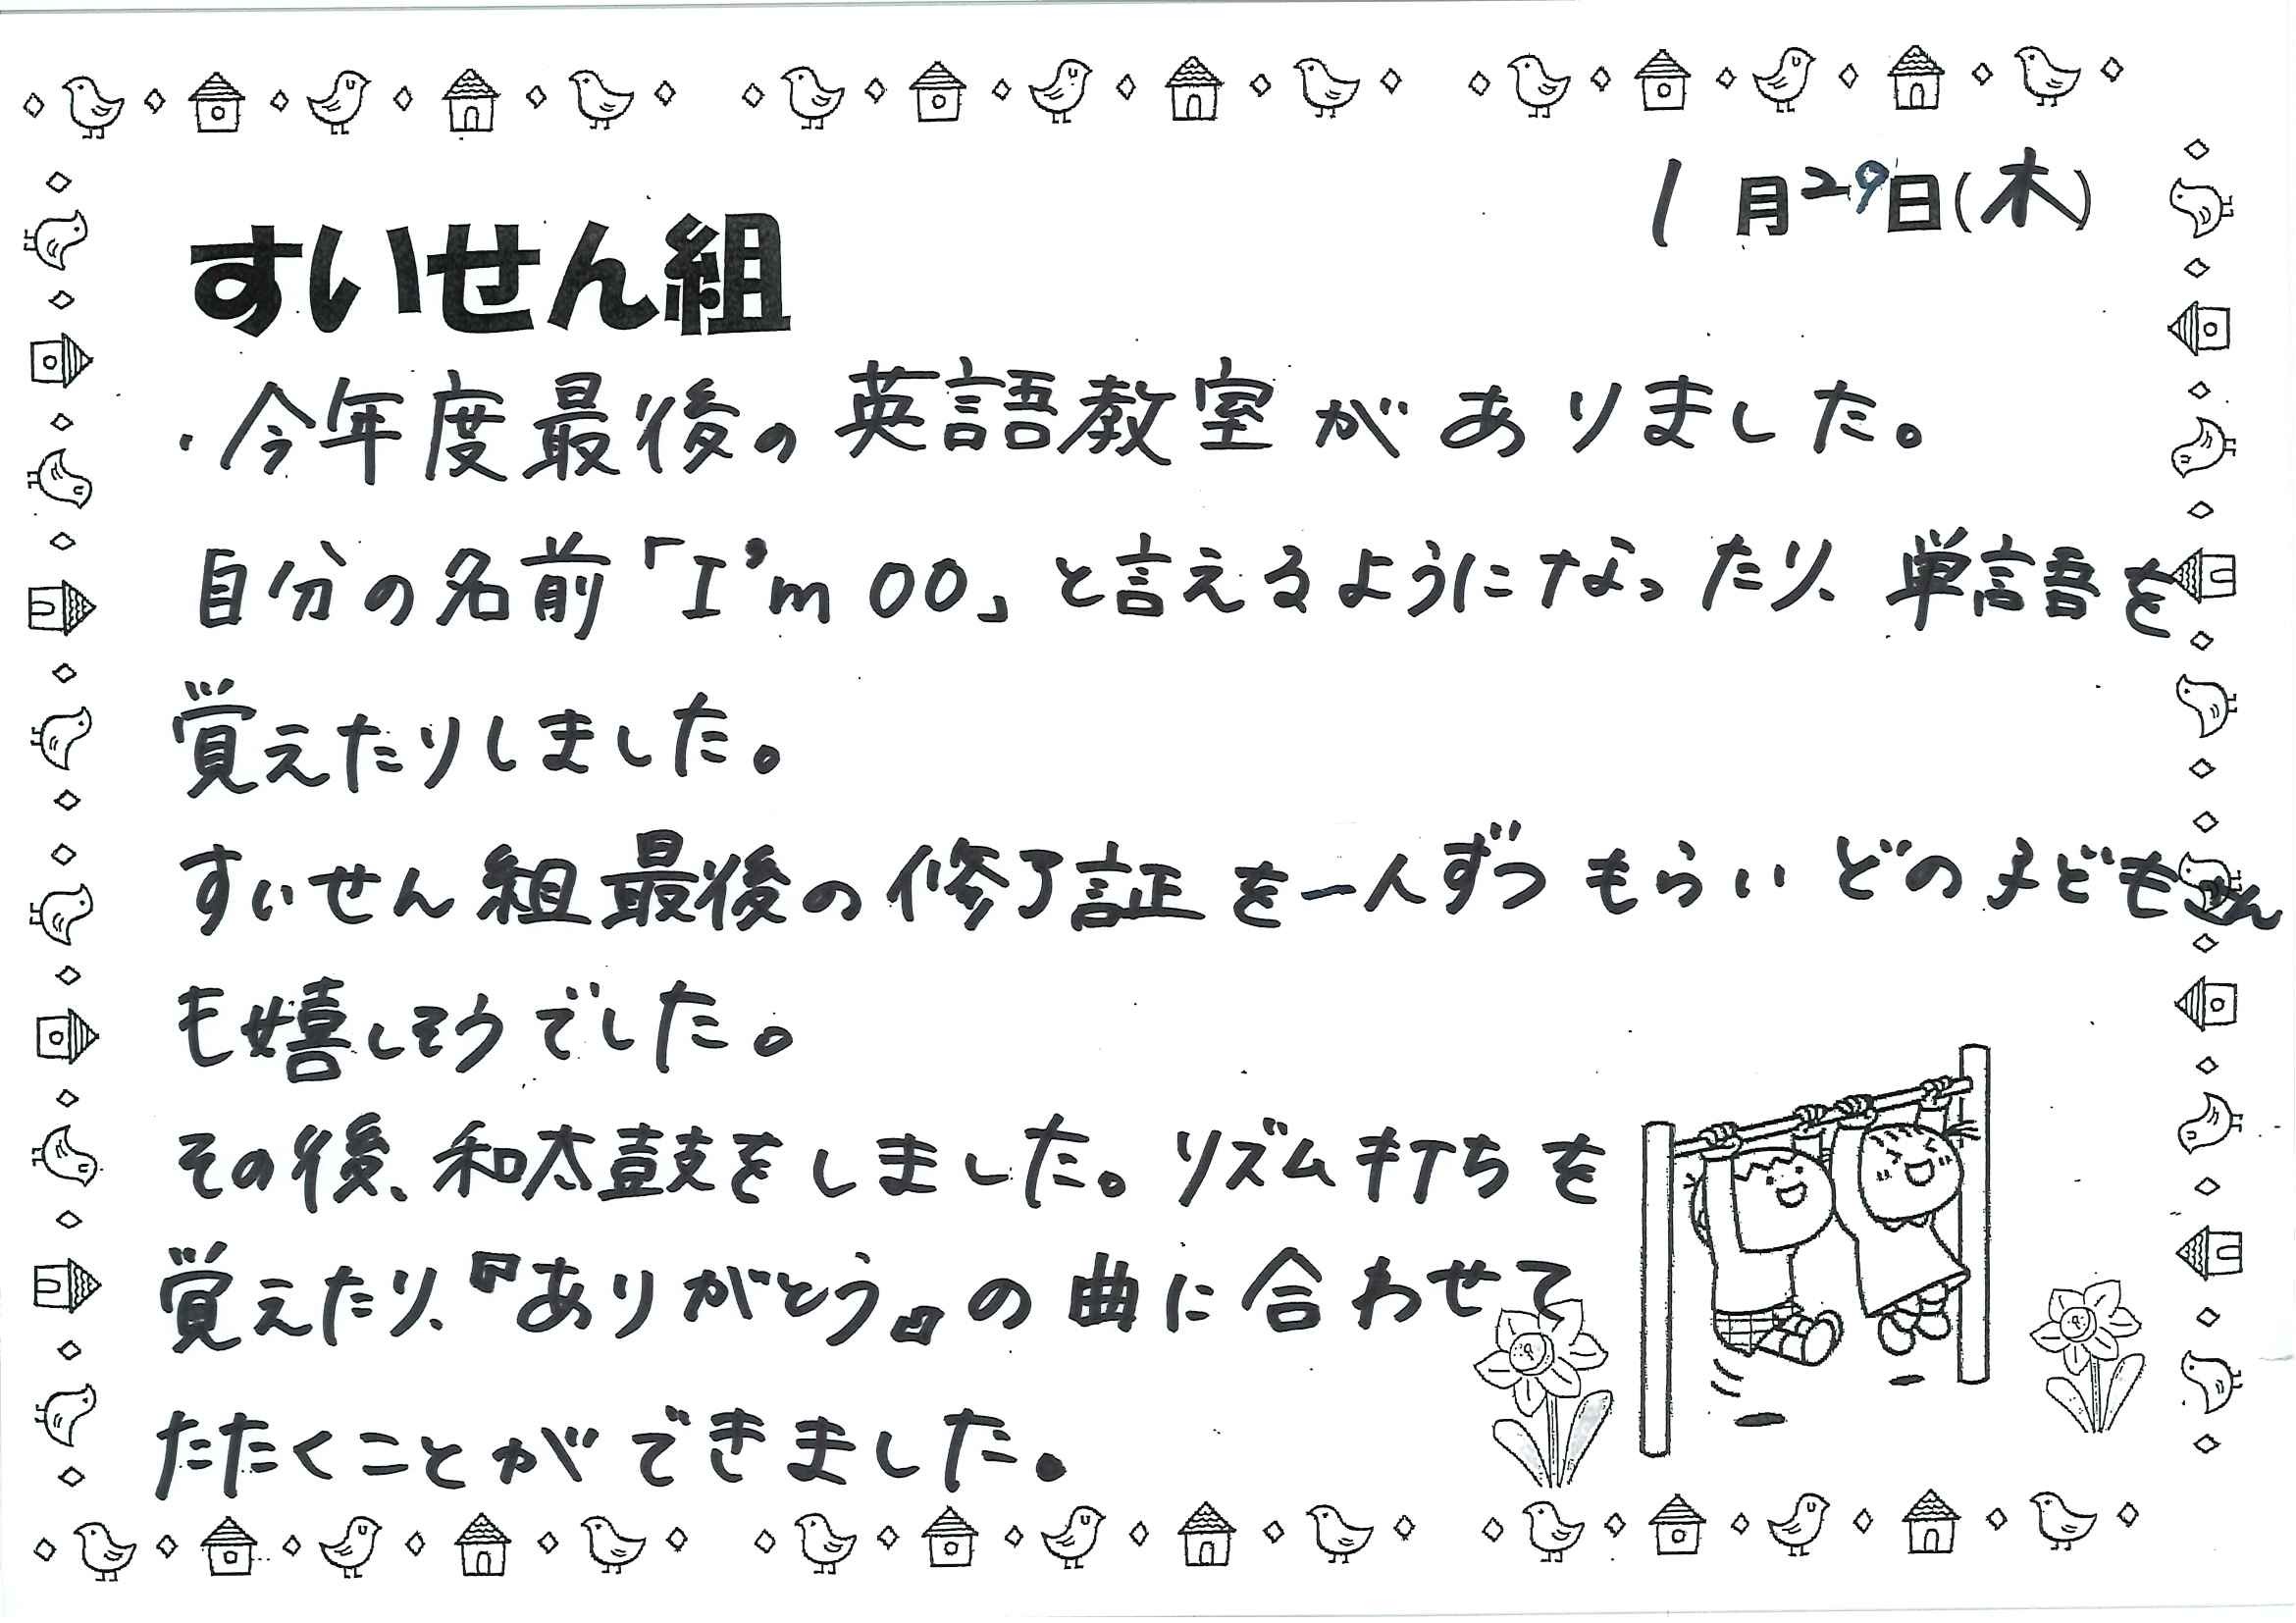 1月29日(木)
すいせん組
・今年度最後の英語教室がありました。
自分の名前「I'm 〇〇」と言えるようになったり、単語を
覚えたりしました。
すいせん組最後の修了証を一人ずつもらいどの子どもさん
も嬉しそうでした。
その後、和太鼓をしました。リズム打ちを
覚えたり、『ありがとう』の曲に合わせて
たたくことができました。